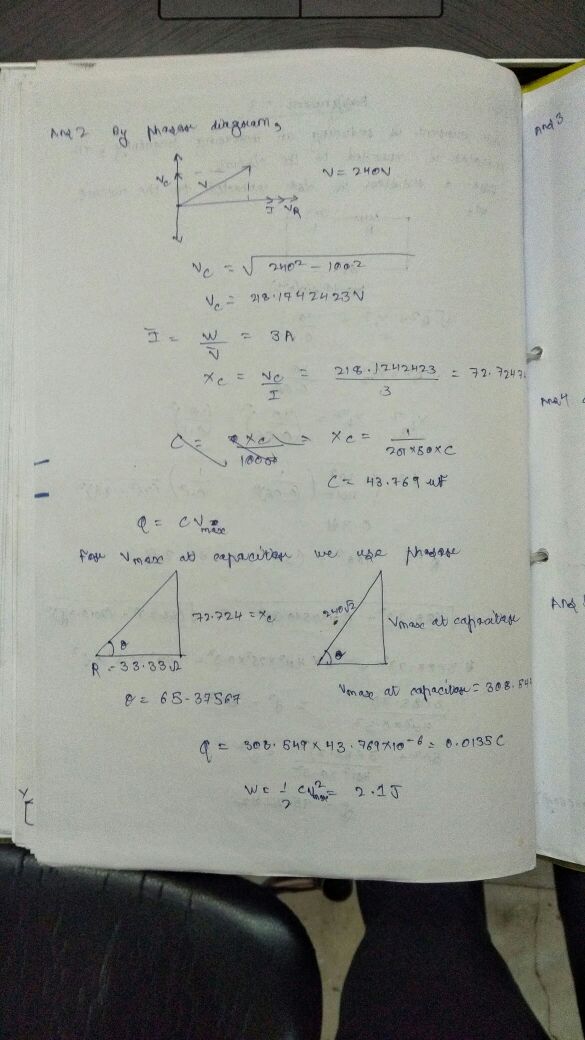 Ans 2 By phasor diagram,
Vc V I VR
V = 240V
Vc = √240² - 100²
Vc = 218.1742423V
I = W/V = 3A
Xc = Vc/I = 218.1742423/3 = 72.7247
C = Xc = 1/2π×50×C
C = 43.769 uF
Q = CVmax
For Vmax at capacitor we use phasor
72.724 = Xc
θ
R = 33.33Ω
240√2
θ
Vmax at capacitor
θ = 65.37567
Vmax at capacitor = 308.54
Q = 308.549 × 43.769×10⁻⁶ = 0.0135C
W = 1/2 CV²max = 2.1J
Ans 3
Ans 4
Ans